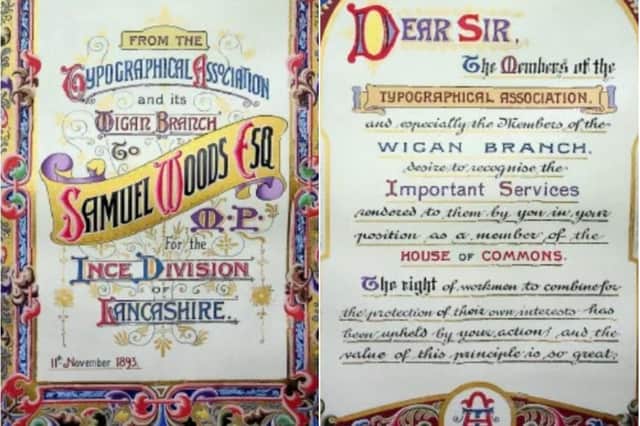 FROM THE
Typographical Association
and its
Wigan Branch
To
SAMUEL WOODS ESQ
M.P.
For the
INCE DIVISION
OF
LANCASHIRE.
11th November 1893.
DEAR SIR,
The Members of the
TYPOGRAPHICAL ASSOCIATION,
and especially the Members of the
WIGAN BRANCH,
desire to recognise the
Important Services
rendered to them by you in your
position as a member of the
HOUSE OF COMMONS.
The right of workmen to combine for
the protection of their own interests has
been upheld by your action, and the
value of this principle is so great,